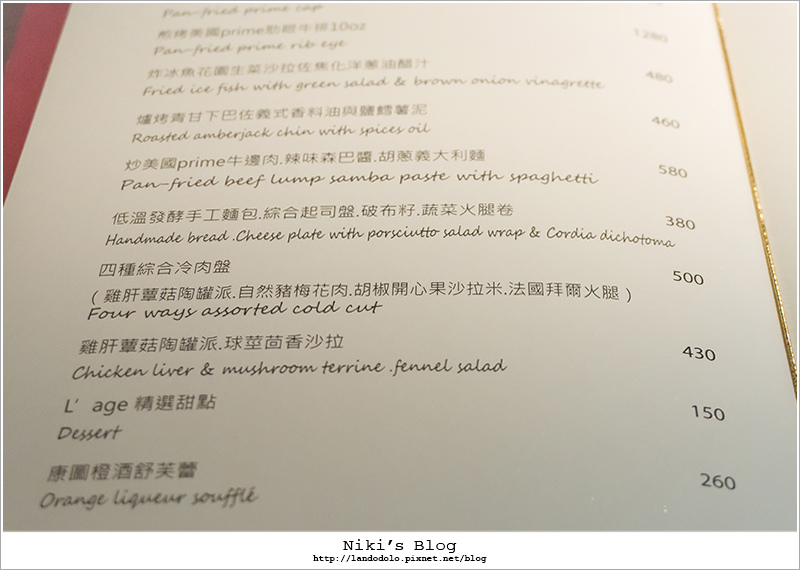 Pan-fried prime cap
煎烤美國prime肋眼牛排10oz
Pan-fried prime rib eye
1280
炸冰魚花園生菜沙拉佐焦化洋蔥油醋汁
Fried ice fish with green salad & brown onion vinagrette
480
爐烤青甘下巴佐義式香料油與鹽鱈薯泥
Roasted amberjack chin with spices oil
460
炒美國prime牛邊肉.辣味森巴醬.胡蔥義大利麵
Pan-fried beef lump samba paste with spaghetti
580
低溫發酵手工麵包.綜合起司盤.破布籽.蔬菜火腿卷
Handmade bread .Cheese plate with porsciutto salad wrap & Cordia dichotoma
380
四種綜合冷肉盤
500
(雞肝蕈菇陶罐派.自然豬梅花肉.胡椒開心果沙拉米.法國拜爾火腿)
Four ways assorted cold cut
雞肝蕈菇陶罐派.球莖茴香沙拉
Chicken liver & mushroom terrine .fennel salad
430
L’age 精選甜點
Dessert
150
康圖橙酒舒芙蕾
Orange liqueur soufflé
260
Niki's Blog
http://landodolo.pixnet.net/blog